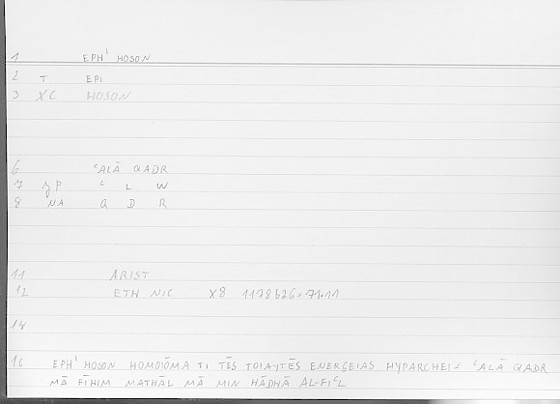 1 EPH' HOSON
2 T EPI
3 XC HOSON
6 ʿALĀ QADR
7 ʿ L W
8 NA Q D R
11 ARIST
12 ETH NIC X8 1178b26
14
16 EPH' HOSON HOMOIŌMA TI TĒS ENERGEIAS HYPARCHEI ʿALĀ QADR
MĀ FĪHIM MATHĀL MĀ MIN HĀDHĀ AL-FIʿL